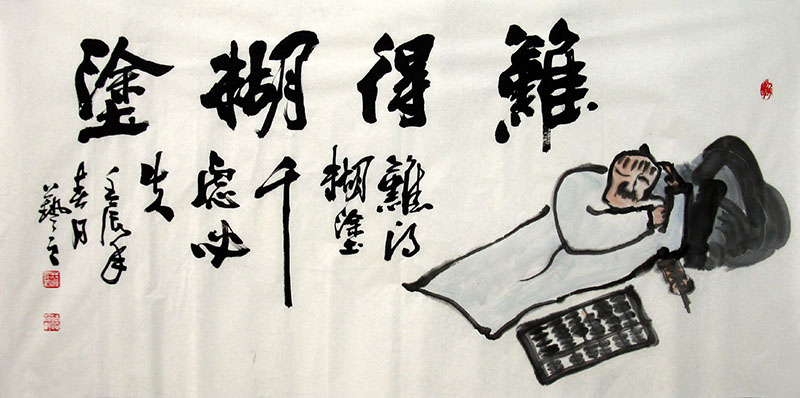 難得糊塗
難得
糊塗
千
慮必
失
壬辰年
春月